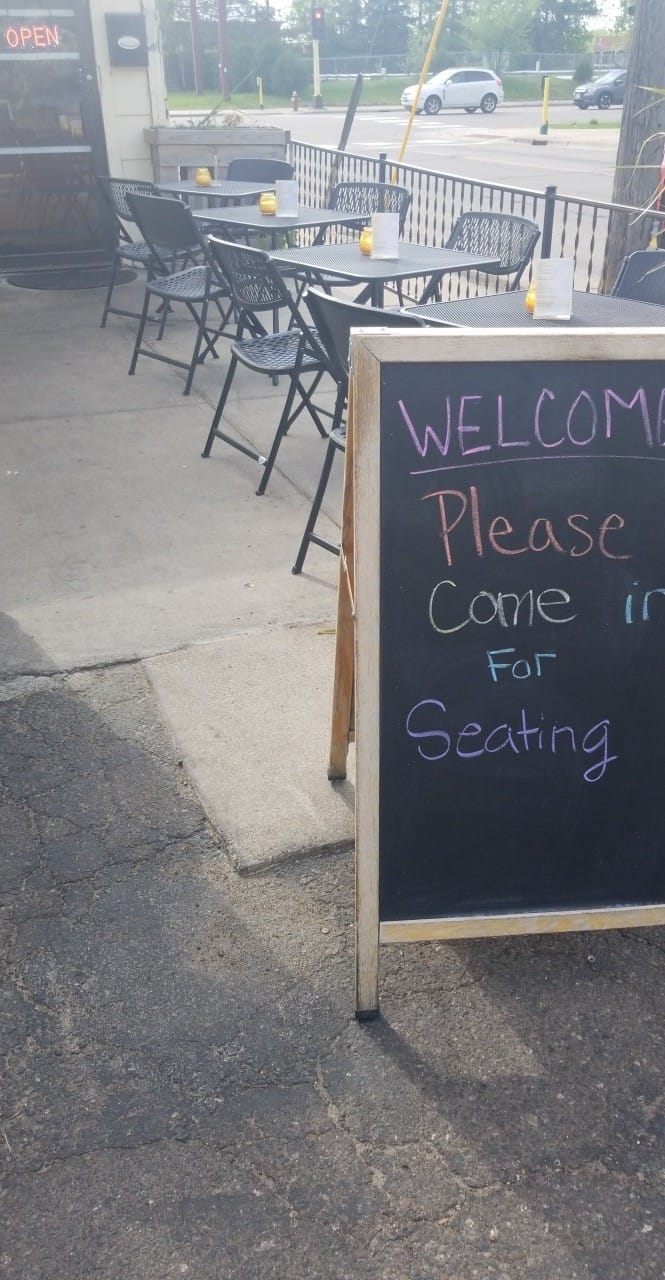 OPEN
WELCOME
Please
Come in
For
Seating